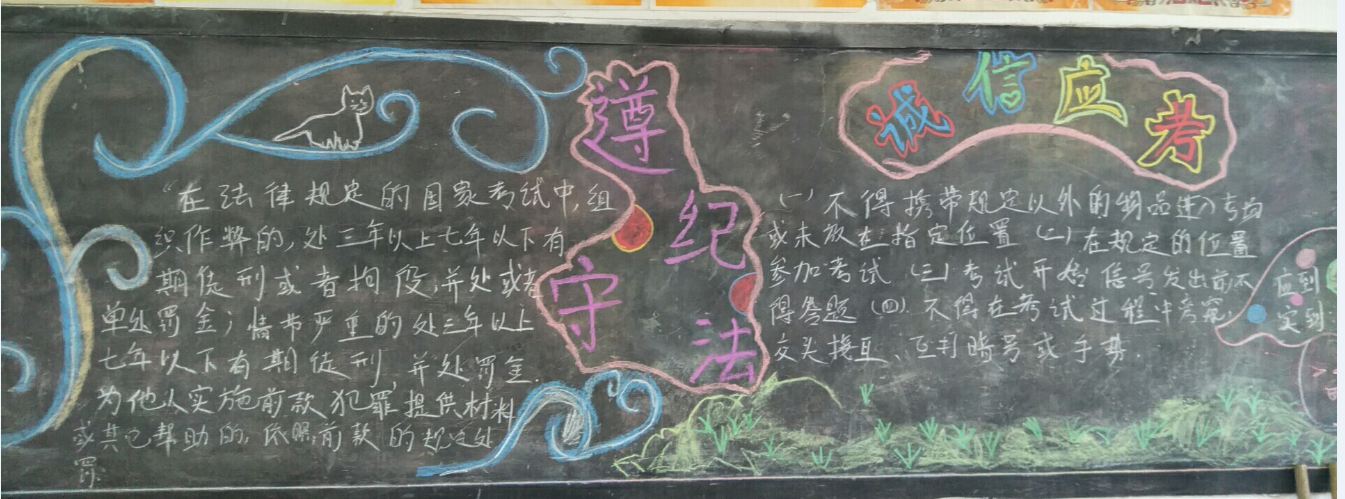 遵
纪
守
法
诚信应考
“在法律规定的国家考试中,组
织作弊的,处三年以上七年以下有
期徒刑或者拘役,并处或者
单处罚金;情节严重的处三年以上
七年以下有期徒刑,并处罚金.
为他人实施前款犯罪提供材料
或其它帮助的,依照前款的规定处
罚.
(一)不得携带规定以外的物品进入考场
或未放在指定位置(二)在规定的位置
参加考试(三)考试开始信号发出前不
得答题(四).不得在考试过程中考窥,
交头接耳、互打暗号或手势.
应到
实到: